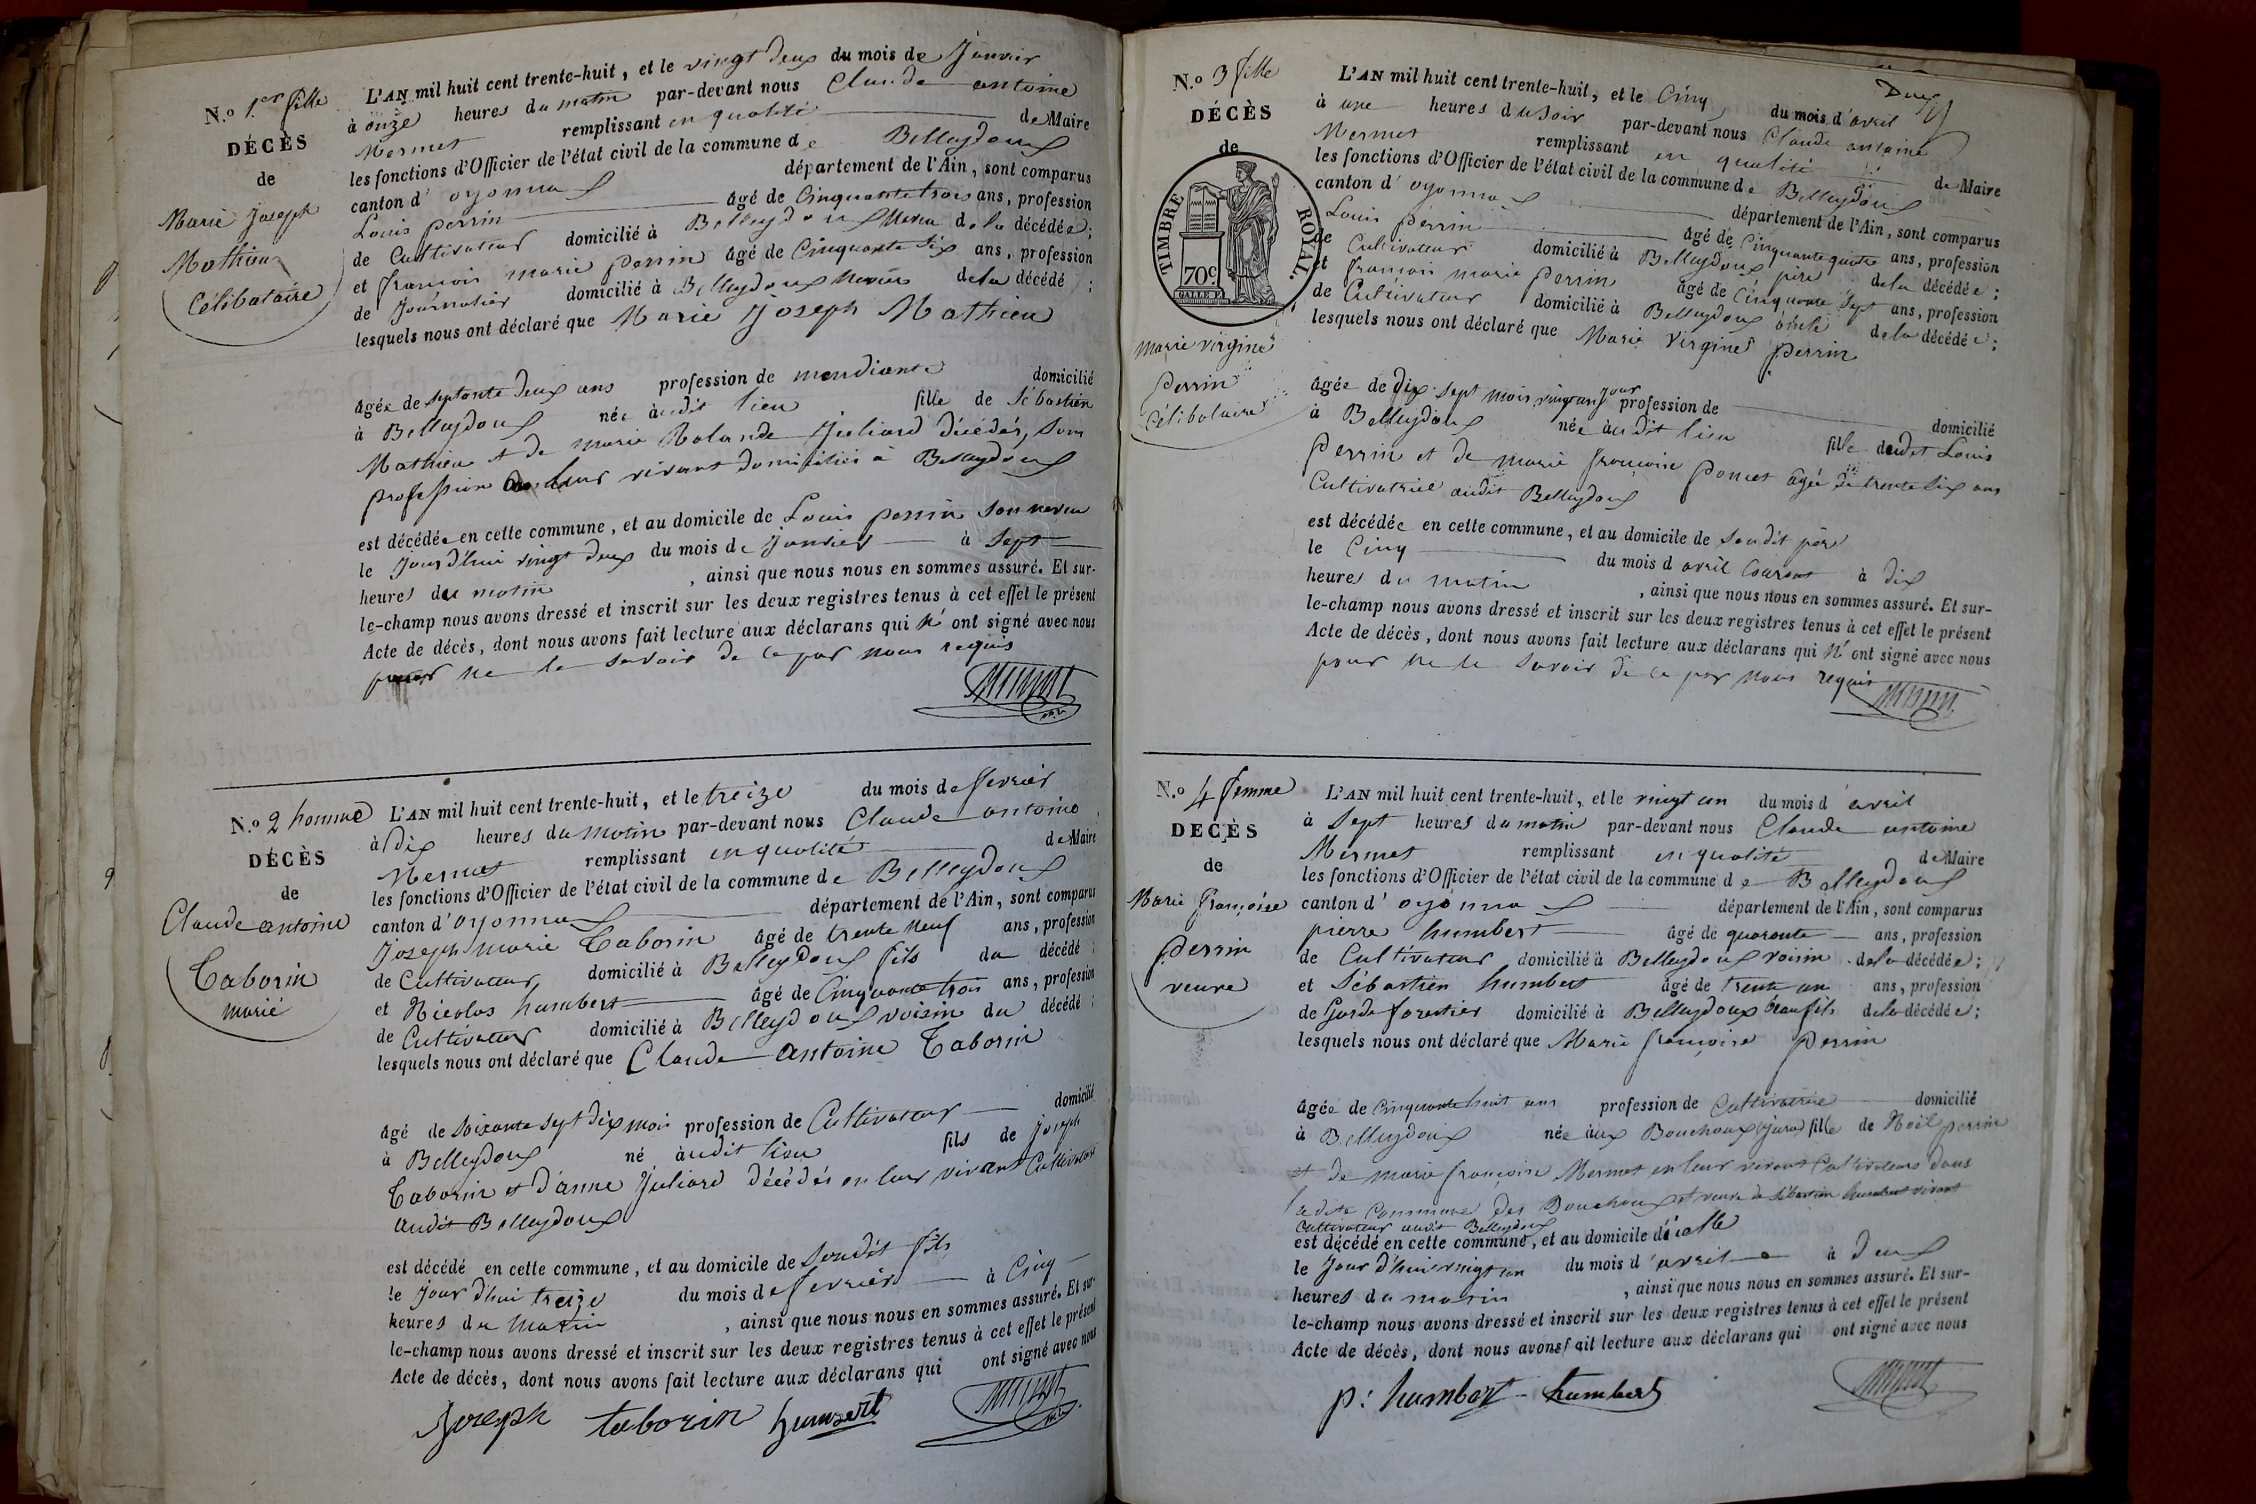 N.o 1er fille
DÉCÈS
de
Marie Joseph
Mathieu
Célibataire
L'AN mil huit cent trente-huit, et le vingt deux du mois de Janvier
à onze heures du matin par-devant nous Claude antoine
Mermet remplissant en qualité de Maire
les fonctions d'Officier de l'état civil de la commune de Belleydoux
canton d'oyonnax département de l'Ain, sont comparus
Louis perrin âgé de Cinquante trois ans, profession
de Cultivateur domicilié à Belleydoux Neveu de la décédée;
et françois marie perrin âgé de Cinquante six ans, profession
de Journalier domicilié à Belleydoux Neveu de la décédé;
lesquels nous ont déclaré que Marie Joseph Mathieu
âgée de septante deux ans profession de mendiante domicilié
à Belleydoux née àudit lieu fille de Sébastien
Mathieu et de marie Rolande Juliard décédés, sans
profession de leur vivant domiciliés à Belleydoux
est décédée en cette commune, et au domicile de Louis perrin son neveu
le Jourd'hui vingt deux du mois de Janvier à Sept
heures du matin, ainsi que nous nous en sommes assuré. Et sur-
le-champ nous avons dressé et inscrit sur les deux registres tenus à cet effet le présent
Acte de décès, dont nous avons fait lecture aux déclarans qui n'ont signé avec nous
pour ne le savoir de ce par nous requis
N.o 2 homme
DÉCÈS
de
Claude antoine
Taborin
marié
L'AN mil huit cent trente-huit, et le treize du mois de fevrier
à dix heures du matin par-devant nous Claude antoine
Mermet remplissant en qualité de Maire
les fonctions d'Officier de l'état civil de la commune de Belleydoux
canton d'oyonnax département de l'Ain, sont comparus
Joseph marie Taborin âgé de trente neuf ans, profession
de Cultivateur domicilié à Belleydoux fils du décédé;
et Nicolas humbert âgé de Cinquante trois ans, profession
de Cultivateur domicilié à Belleydoux voisin du décédé;
lesquels nous ont déclaré que Claude antoine Taborin
âgé de soixante sept dix mois profession de Cultivateur domicilié
à Belleydoux né àudit lieu fils de Joseph
Taborin et d'anne Juliard décédés en leur vivant Cultivateurs
audit Belleydoux
est décédé en cette commune, et au domicile de Sondit fils
le Jour d'hui treize du mois de fevrier à Cinq
heures du matin, ainsi que nous nous en sommes assuré. Et sur-
le-champ nous avons dressé et inscrit sur les deux registres tenus à cet effet le présent
Acte de décès, dont nous avons fait lecture aux déclarans qui ont signé avec nous
Joseph taborin humbert
N.o 3 fille
DÉCÈS
de
TIMBRE ROYAL.
70c
marie virginie
perrin
Célibataire
L'AN mil huit cent trente-huit, et le Cinq du mois d'avril
à une heures du soir par-devant nous Claude antoine
Mermet remplissant en qualité de Maire
les fonctions d'Officier de l'état civil de la commune de Belleydoux
canton d'oyonnax département de l'Ain, sont comparus
Louis perrin âgé de Cinquante quatre ans, profession
de Cultivateur domicilié à Belleydoux père de la décédée;
et françois marie perrin âgé de Cinquante sept ans, profession
de Cultivateur domicilié à Belleydoux oncle de la décédée;
lesquels nous ont déclaré que Marie Virginie perrin
âgée de dix sept mois vingt un jour profession de domicilié
à Belleydoux née àudit lieu fille dudit Louis
perrin et de marie françoise poncet âgée de trente six ans
Cultivatrice audit Belleydoux
est décédée en cette commune, et au domicile de sondit père
le Cinq du mois d'avril Courant à dix
heures du matin, ainsi que nous nous en sommes assuré. Et sur-
le-champ nous avons dressé et inscrit sur les deux registres tenus à cet effet le présent
Acte de décès, dont nous avons fait lecture aux déclarans qui n'ont signé avec nous
pour ne le savoir de ce par nous requis
N.o 4 femme
DÉCÈS
de
Marie françoise
perrin
veuve
L'AN mil huit cent trente-huit, et le vingt un du mois d'avril
à Sept heures du matin par-devant nous Claude antoine
Mermet remplissant en qualité de Maire
les fonctions d'Officier de l'état civil de la commune de Belleydoux
canton d'oyonnax département de l'Ain, sont comparus
pierre humbert âgé de quarante ans, profession
de Cultivateur domicilié à Belleydoux voisin de la décédée;
et Sébastien humbert âgé de trente un ans, profession
de Garde forestier domicilié à Belleydoux beau fils de la décédée;
lesquels nous ont déclaré que Marie françoise perrin
âgée de Cinquante huit ans profession de Cultivatrice domicilié
à Belleydoux née aux Bouchoux (Jura) fille de Noël perrin
et de marie françoise Mermet en leur vivant Cultivateurs dans
ladite Commune des Bouchoux et veuve de Sébastien humbert vivant
Cultivateur audit Belleydoux
est décédé en cette commune, et au domicile d'icelle
le Jour d'hui vingt un du mois d'avril à deux
heures du matin, ainsi que nous nous en sommes assuré. Et sur-
le-champ nous avons dressé et inscrit sur les deux registres tenus à cet effet le présent
Acte de décès, dont nous avons fait lecture aux déclarans qui ont signé avec nous
p: humbert humbert